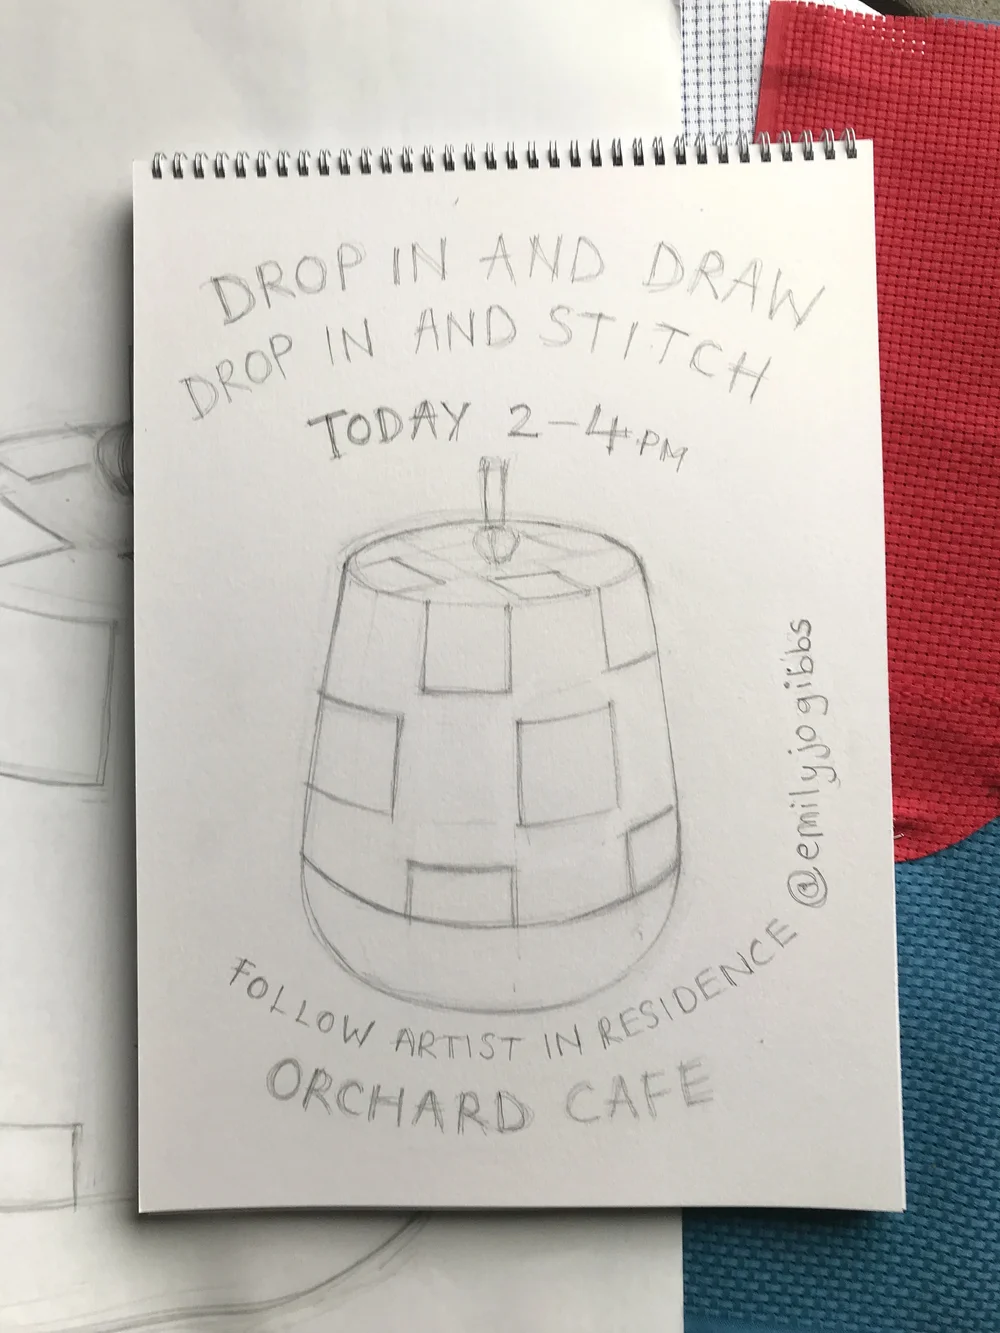 DROP IN AND DRAW
DROP IN AND STITCH
TODAY 2-4PM
FOLLOW ARTIST IN RESIDENCE
@emilyjogibbs
ORCHARD CAFE